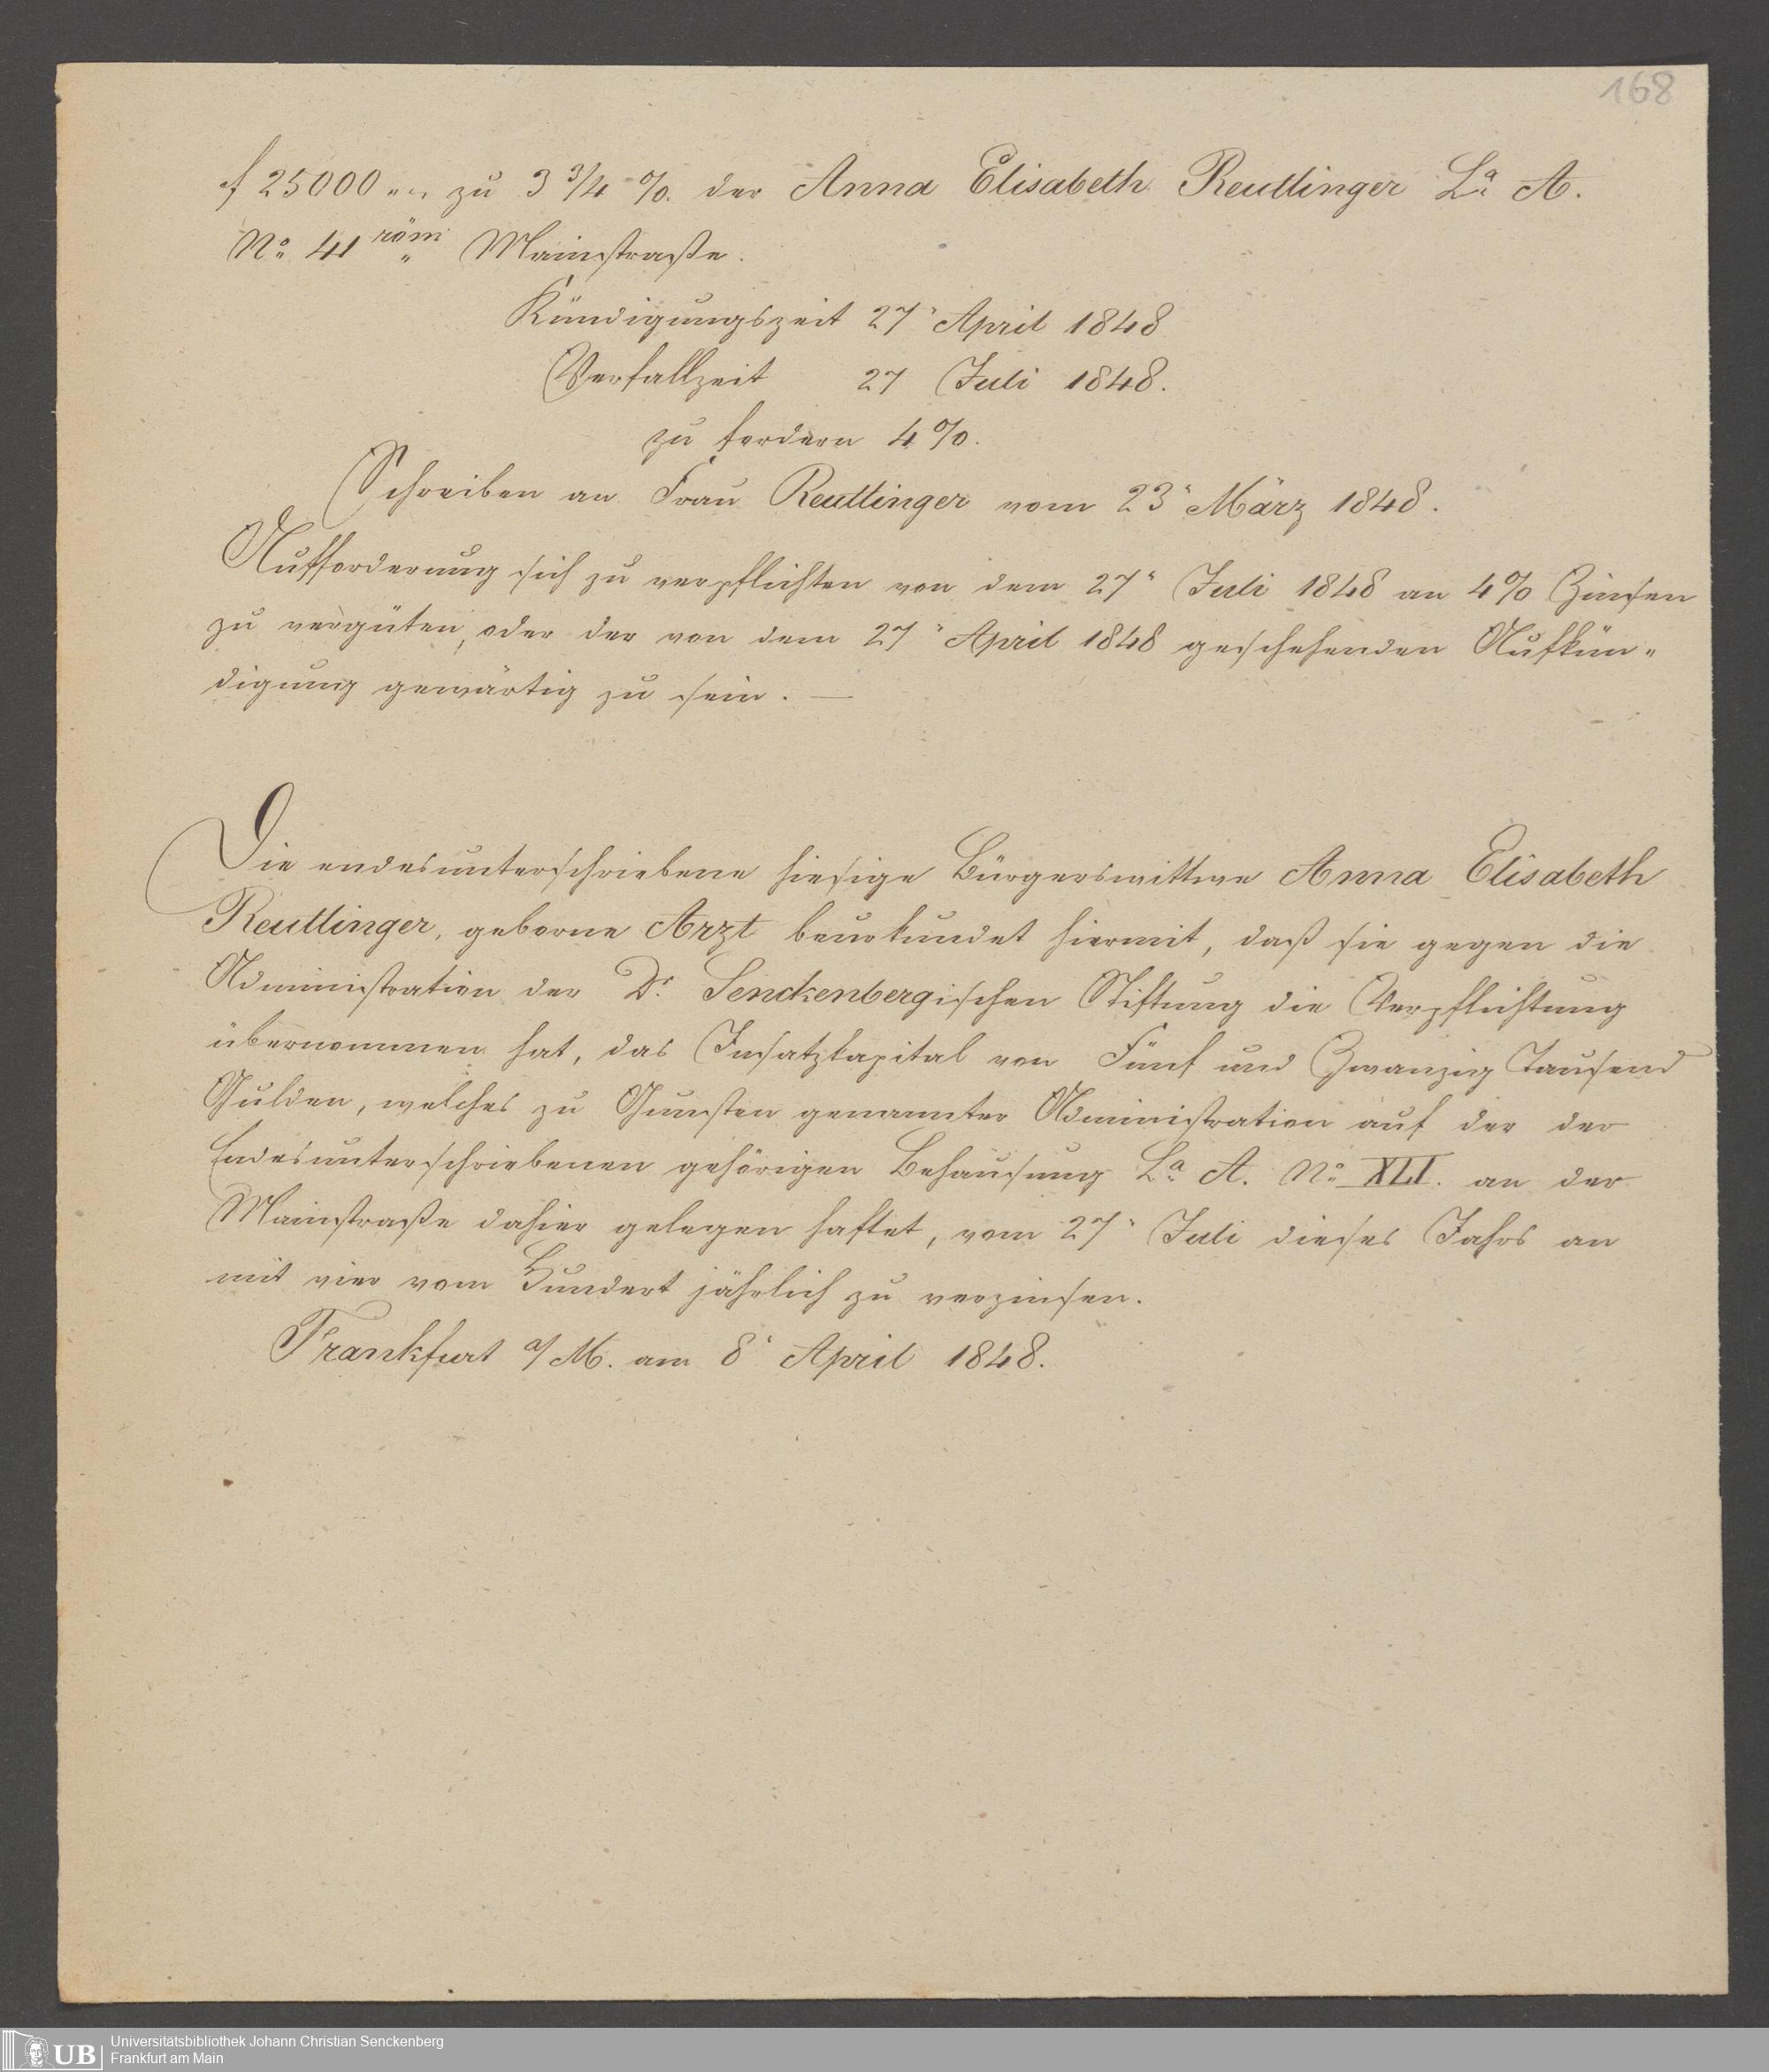 168
f 25000 „ „ zu 3 3/4 %. der Anna Elisabeth Reutlinger La A.
No. 41 röm. Mainstraße.
Kündigungszeit 27. April 1848
Verfallzeit 27 Juli 1848.
zu fordern 4%.
Schreiben an Frau Reutlinger vom 23. März 1848.
Aufforderung sich zu verpflichten von dem 27. Juli 1848 an 4% Zinsen
zu vergüten, oder der von dem 27. April 1848 geschehenden Aufkün-
digung gewärtig zu sein. —
Die endesunterschriebene hiesige Bürgerswittwe Anna Elisabeth
Reutlinger, geborne Arzt beurkundet hiermit, daß sie gegen die
Administration der Dr. Senckenbergischen Stiftung die Verpflichtung
übernommen hat, das Insatzkapital von Fünf und Zwanzig Tausend
Gulden, welches zu Gunsten genannter Administration auf der der
Endesunterschriebenen gehörigen Behausung La A. No. XLI. an der
Mainstraße dahier gelegen haftet, vom 27. Juli dieses Jahrs an
mit vier vom Hundert jährlich zu verzinsen.
Frankfurt a/M. am 8. April 1848.
UB
Universitätsbibliothek Johann Christian Senckenberg
Frankfurt am Main